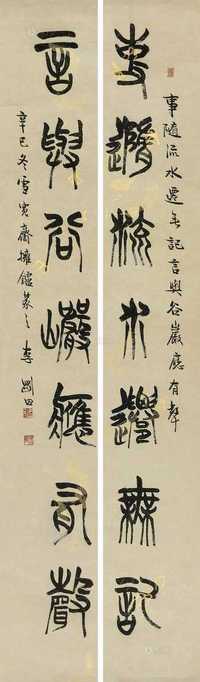 事隨流水遷无記言與谷巖應有聲
事隨流水遷無記
言與谷巖應有聲
辛巳冬雪寅齋擁鑪篆之李剛田